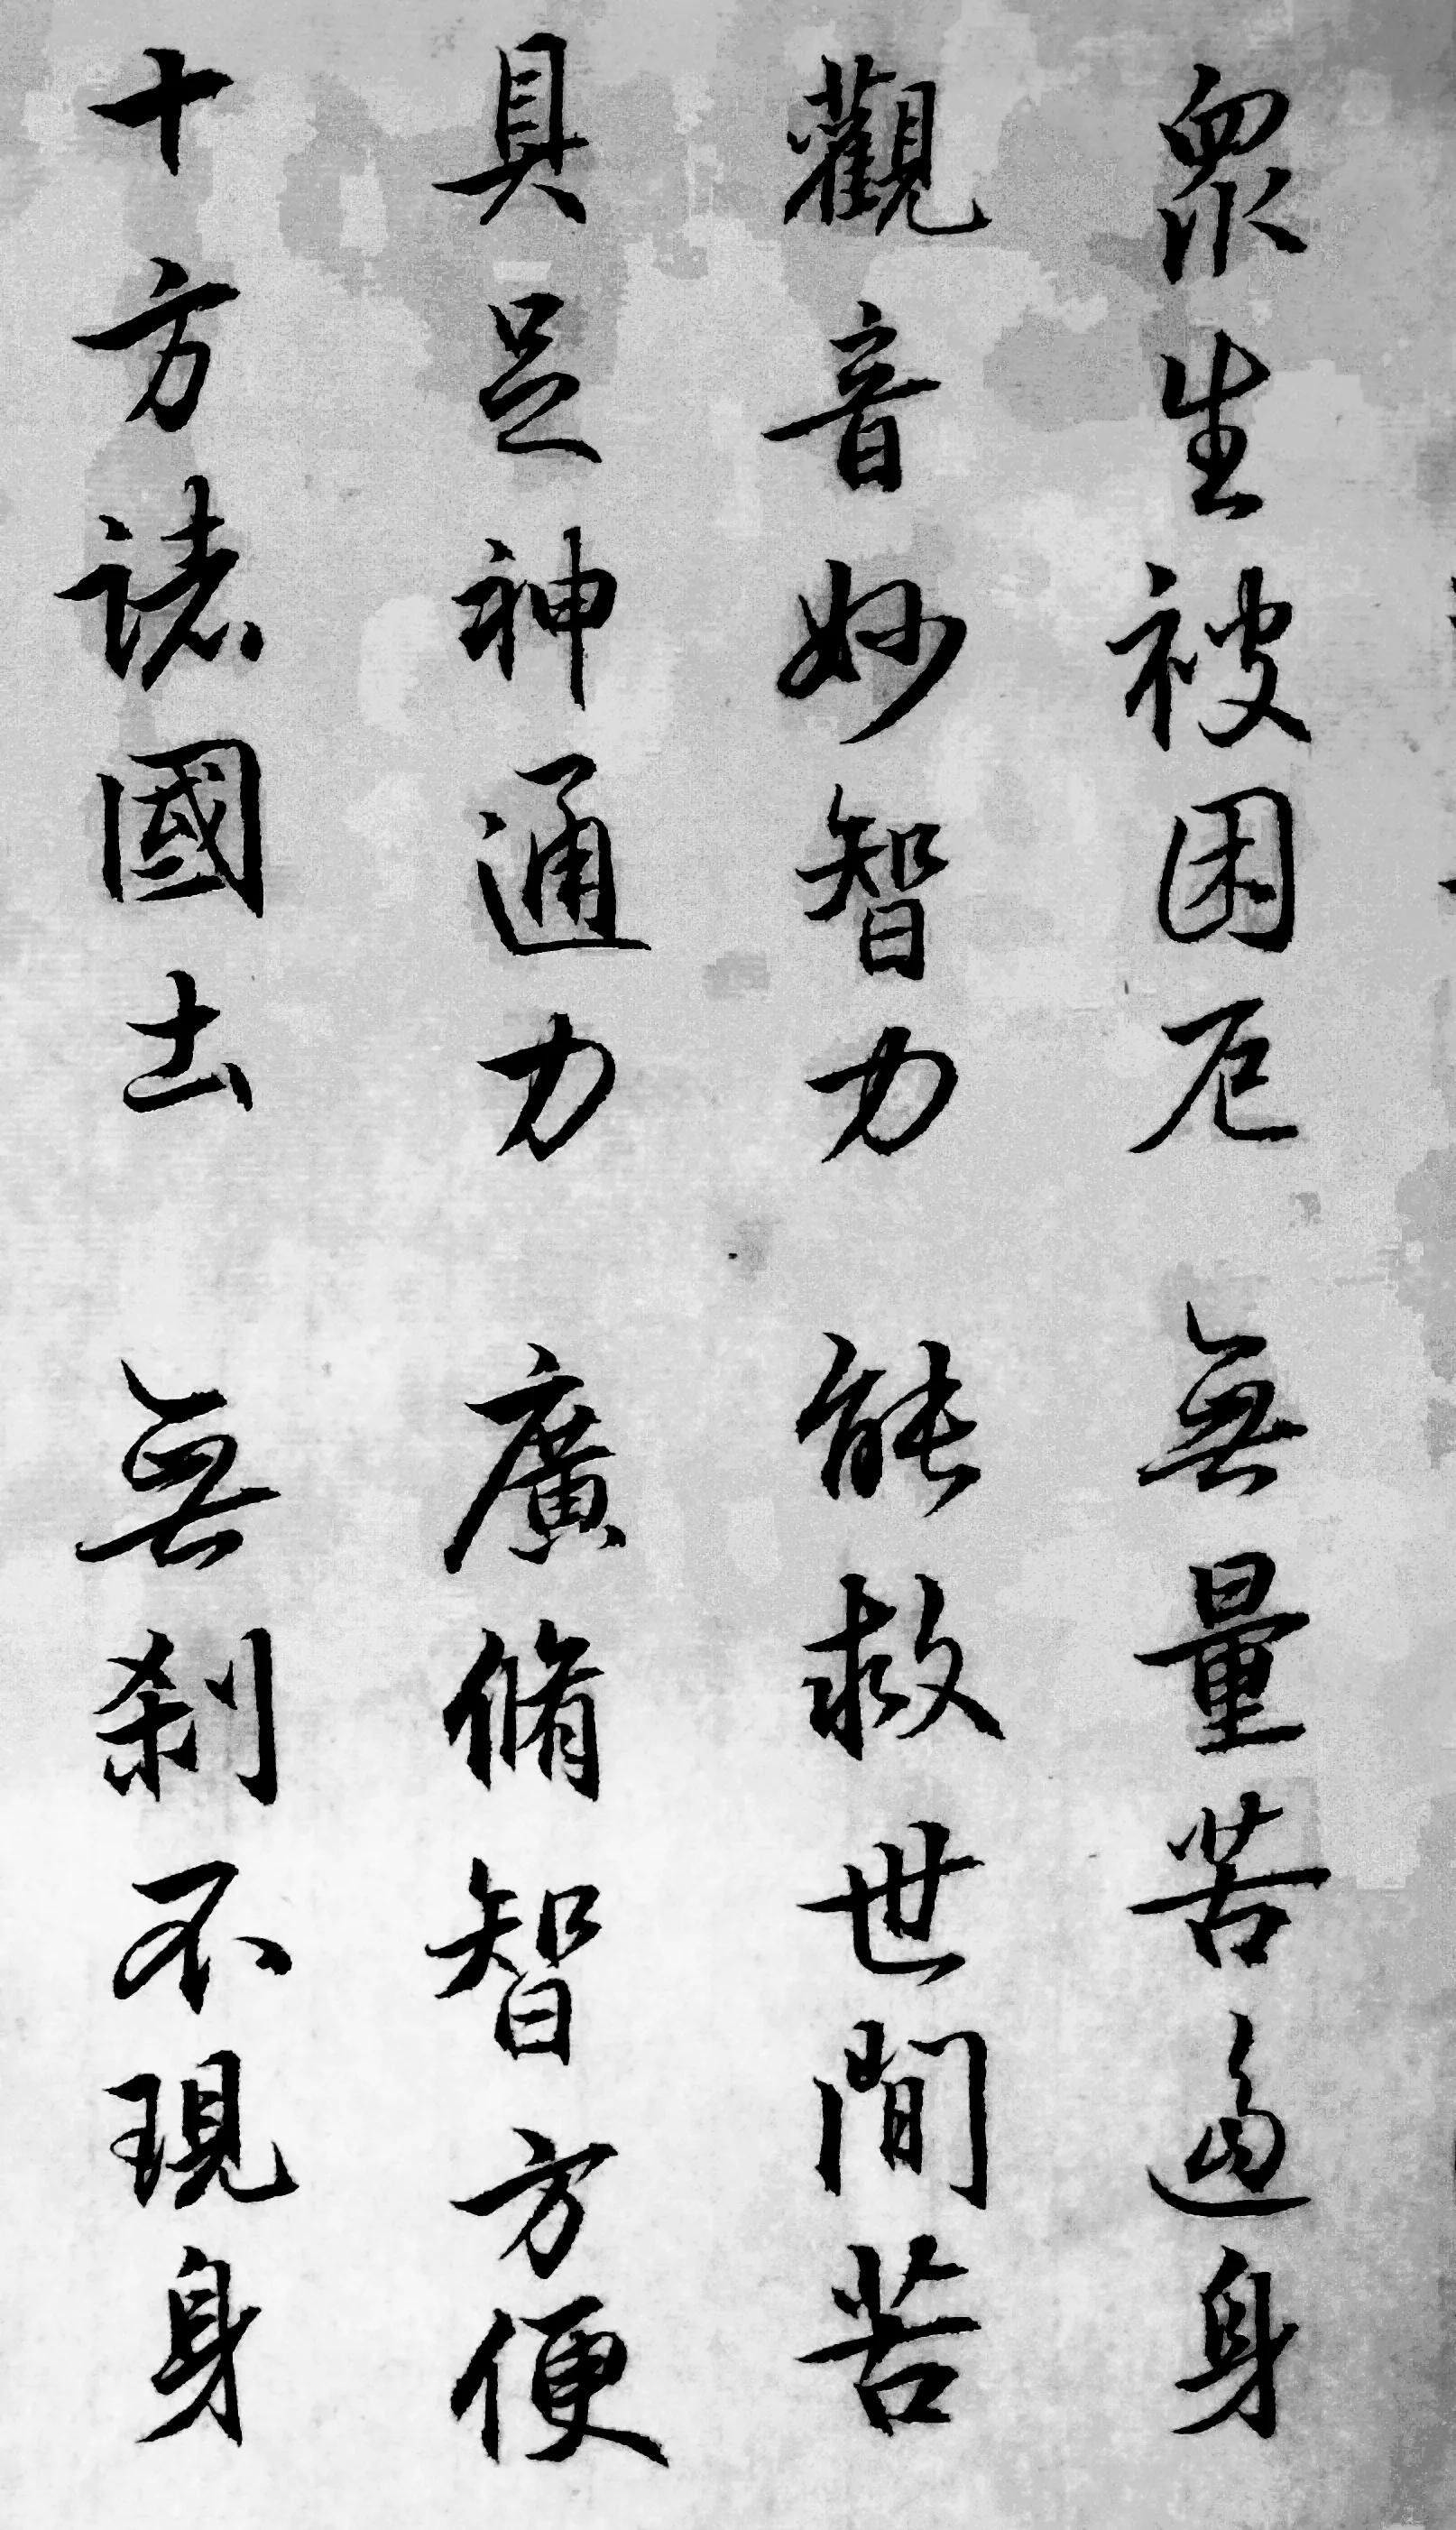 眾生被困厄 無量苦逼身
觀音妙智力 能救世間苦
具足神通力 廣脩智方便
十方諸國土 無剎不現身